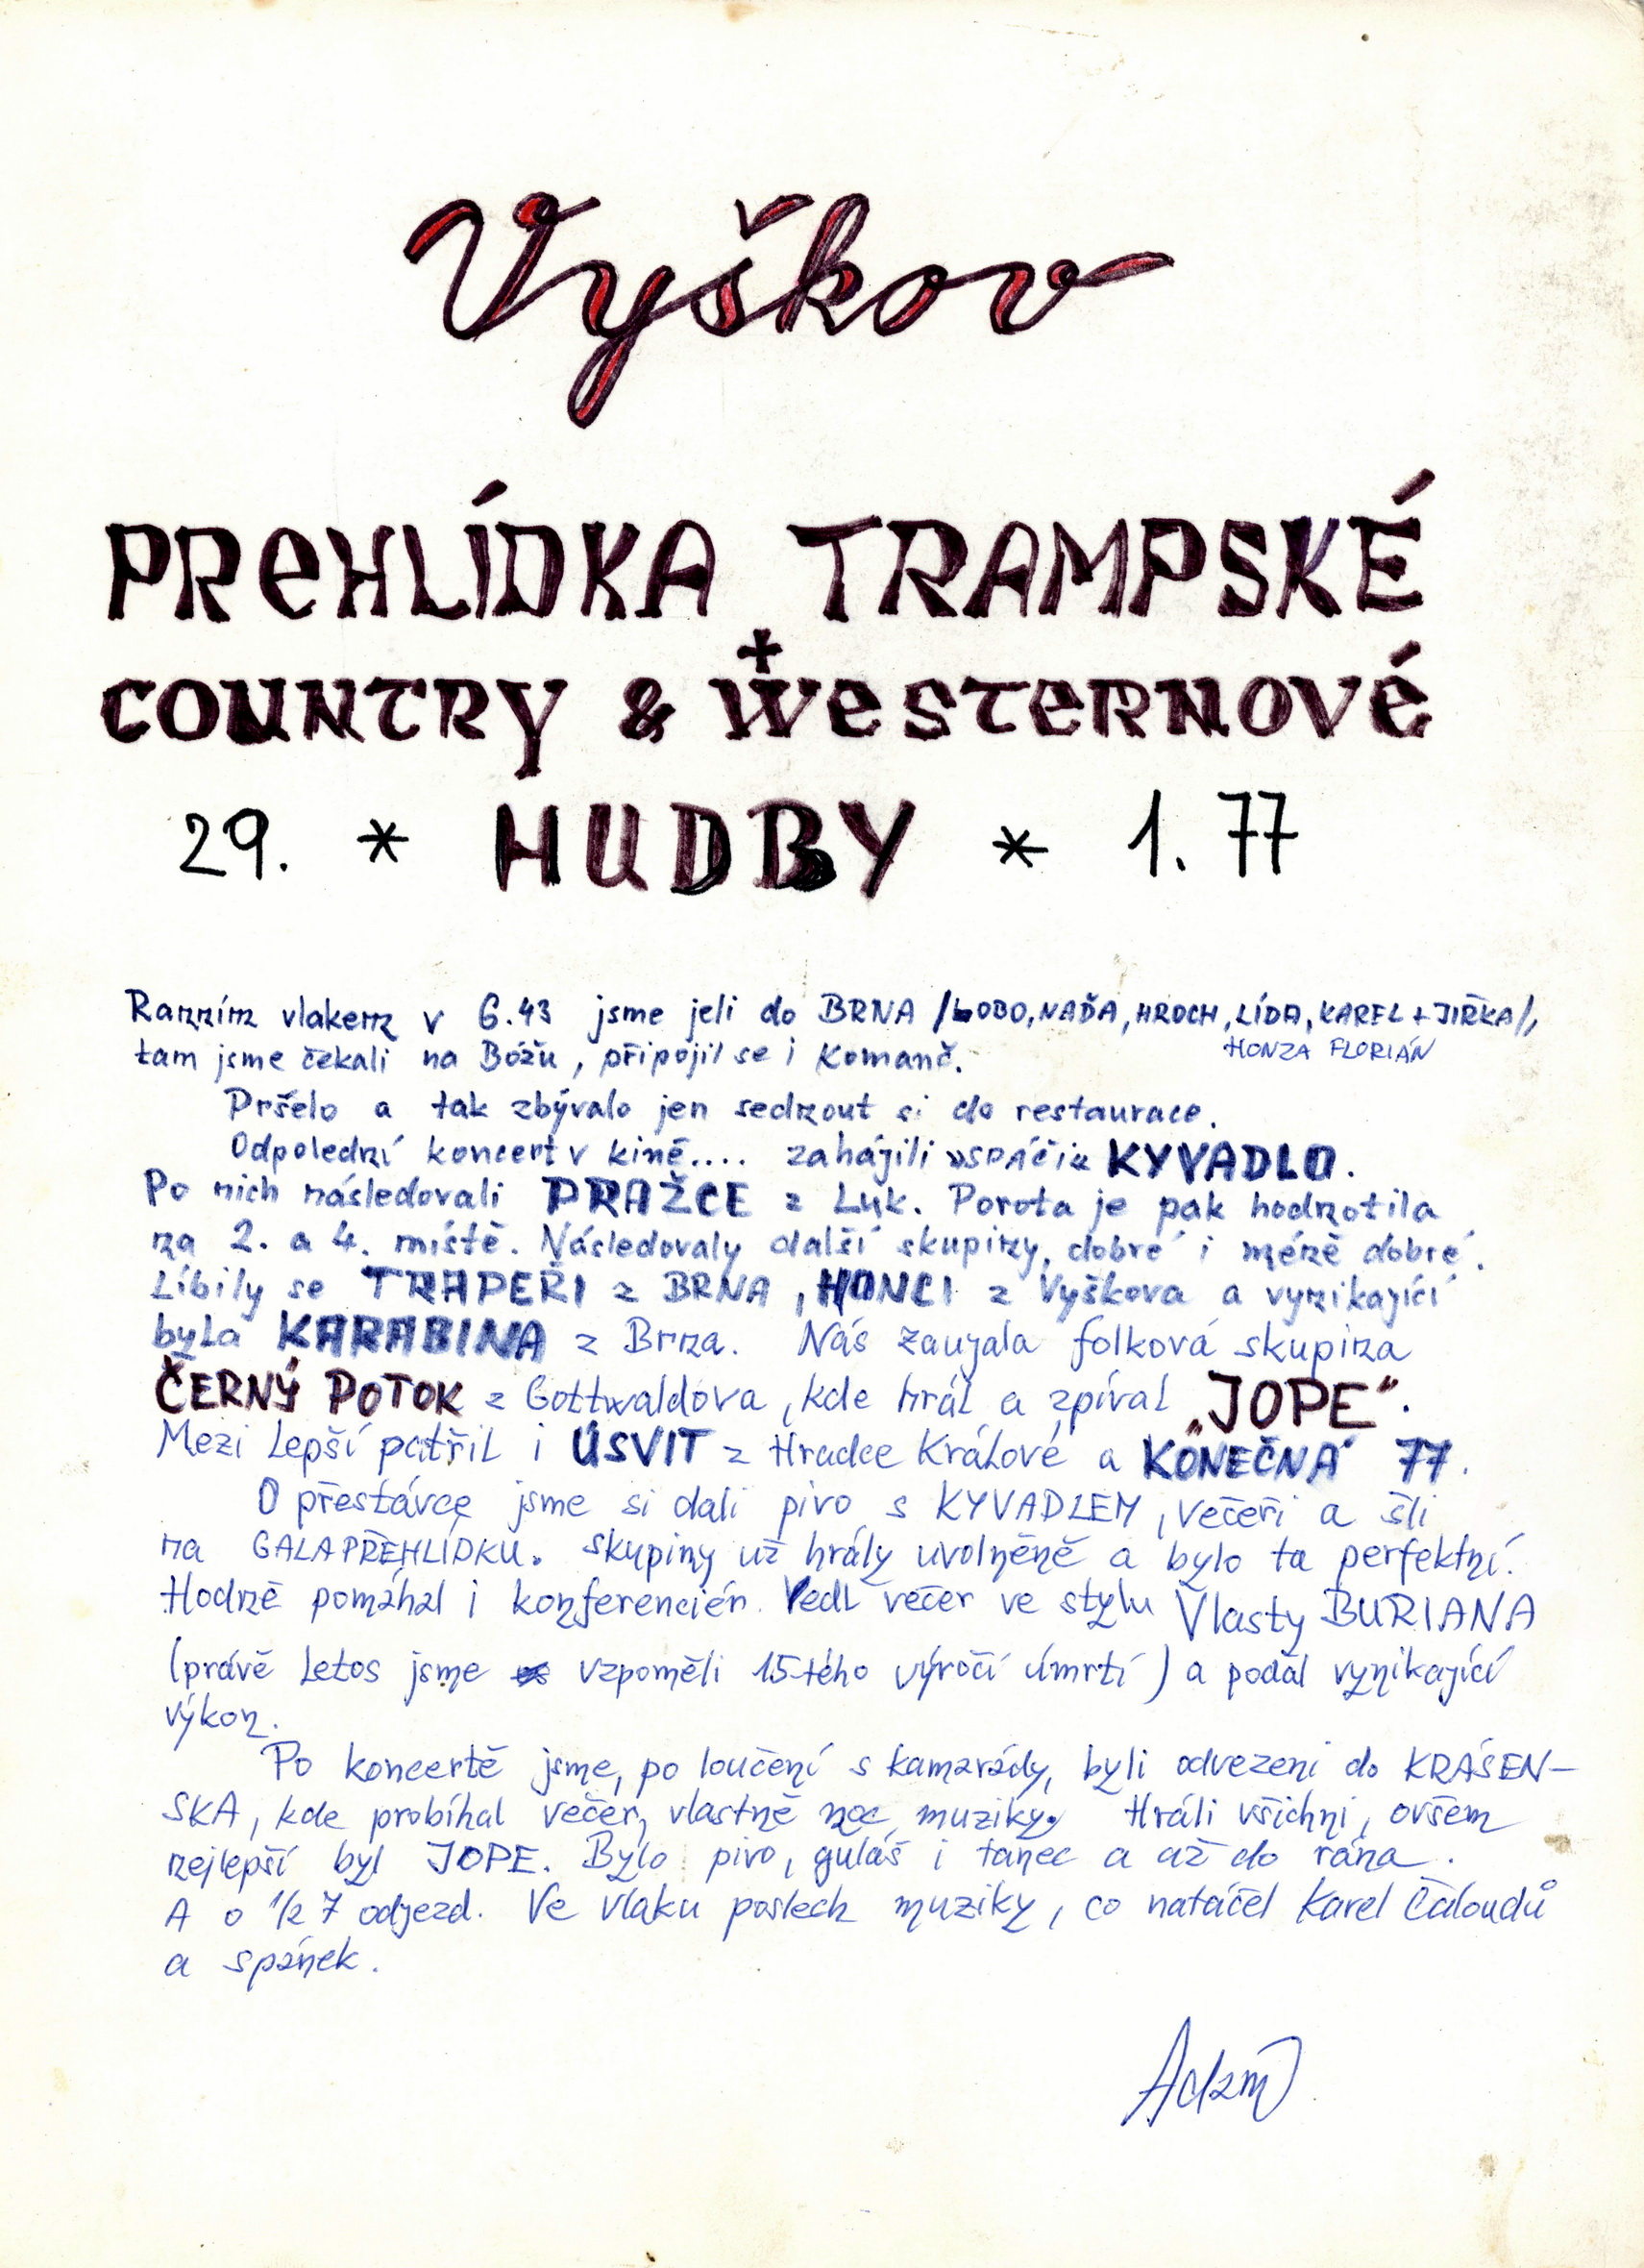 Vyškov
PREHLÍDKA TRAMPSKÉ
COUNTRY & WESTERNOVÉ
29. * HUDBY * 1. 77
Ranním vlakem v 6.43 jsme jeli do BRNA /LOBO, NAĎA, HROCH, LÍDA, KAREL + JIŘKA/,
HONZA FLORIÁN
tam jsme čekali na Bóžu, připojil se i Komanč.
Pršelo a tak zbývalo jen sednout si do restaurace.
Odpolední koncert v kině.... zahájili »SPÁČI« KYVADLO.
Po nich následovali PRAŽCE z Luk. Porota je pak hodnotila
na 2. a 4. místě. Následovaly další skupiny, dobré i méně dobré.
Líbily se TRAPEŘI z BRNA, HONCI z Vyškova a vynikající
byla KARABINA z Brna. Nás zaujala folková skupina
ČERNÝ POTOK z Gottwaldova, kde hrál a zpíval „JOPE“.
Mezi lepší patřil i ÚSVIT z Hradce Králové a KONEČNÁ 77.
O přestávce jsme si dali pivo s KYVADLEM, večeři a šli
na GALAPŘEHLÍDKU. Skupiny už hrály uvolněně a bylo to perfektní.
Hodně pomáhal i konferenciér. Vedl večer ve stylu Vlasty BURIANA
(právě letos jsme vzpoměli 15-tého výročí úmrtí) a podal vynikající
výkon.
Po koncertě jsme, po loučení s kamarády, byli odvezeni do KRÁSEN-
SKA, kde probíhal večer, vlastně noc, muziky. Hráli všichni, ovšem
nejlepší byl JOPE. Bylo pivo, guláš i tanec a až do rána.
A o 1/2 7 odjezd. Ve vlaku poslech muziky, co natáčel Karel Čaloudů
a spánek.
Adam